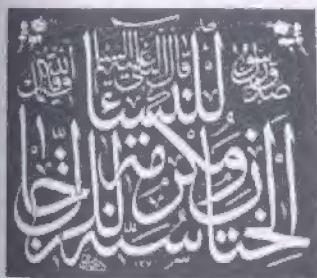 قال النبي عليه السلام
الختان سنة للرجال
ومكرمة للنساء
صدق رسول الله